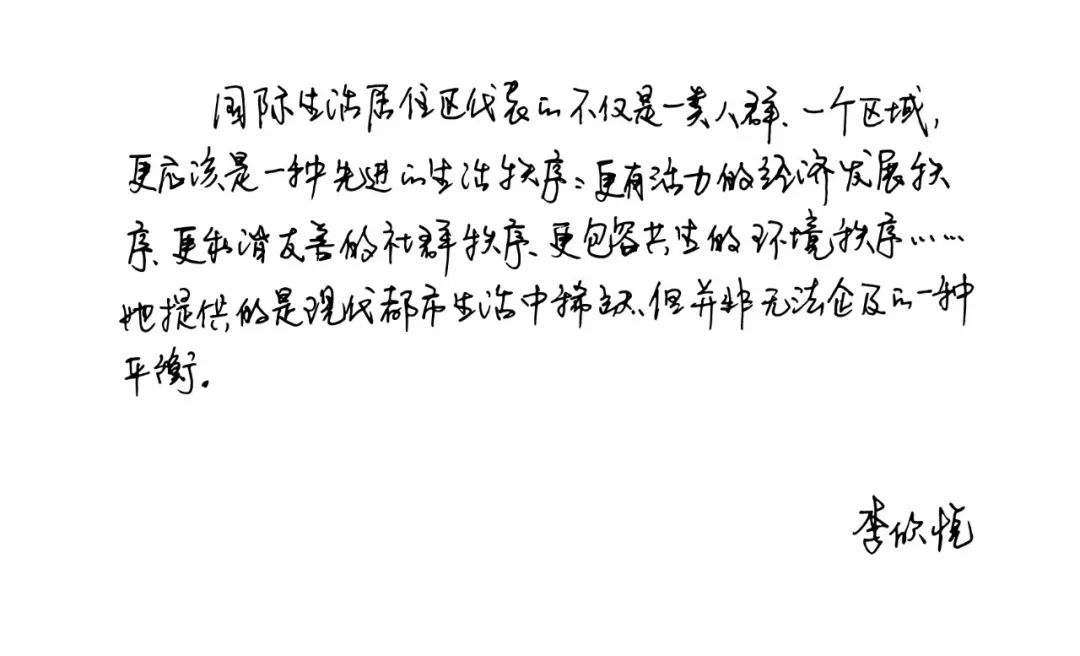 国际生活居住区代表的不仅是一类人群、一个区域,
更应该是一种先进的生活秩序:更有活力的经济发展秩
序、更和谐友善的社群秩序、更包容共生的环境秩序……
她提供的是现代都市生活中稀缺、但并非无法企及的一种
平衡。
李欣悦